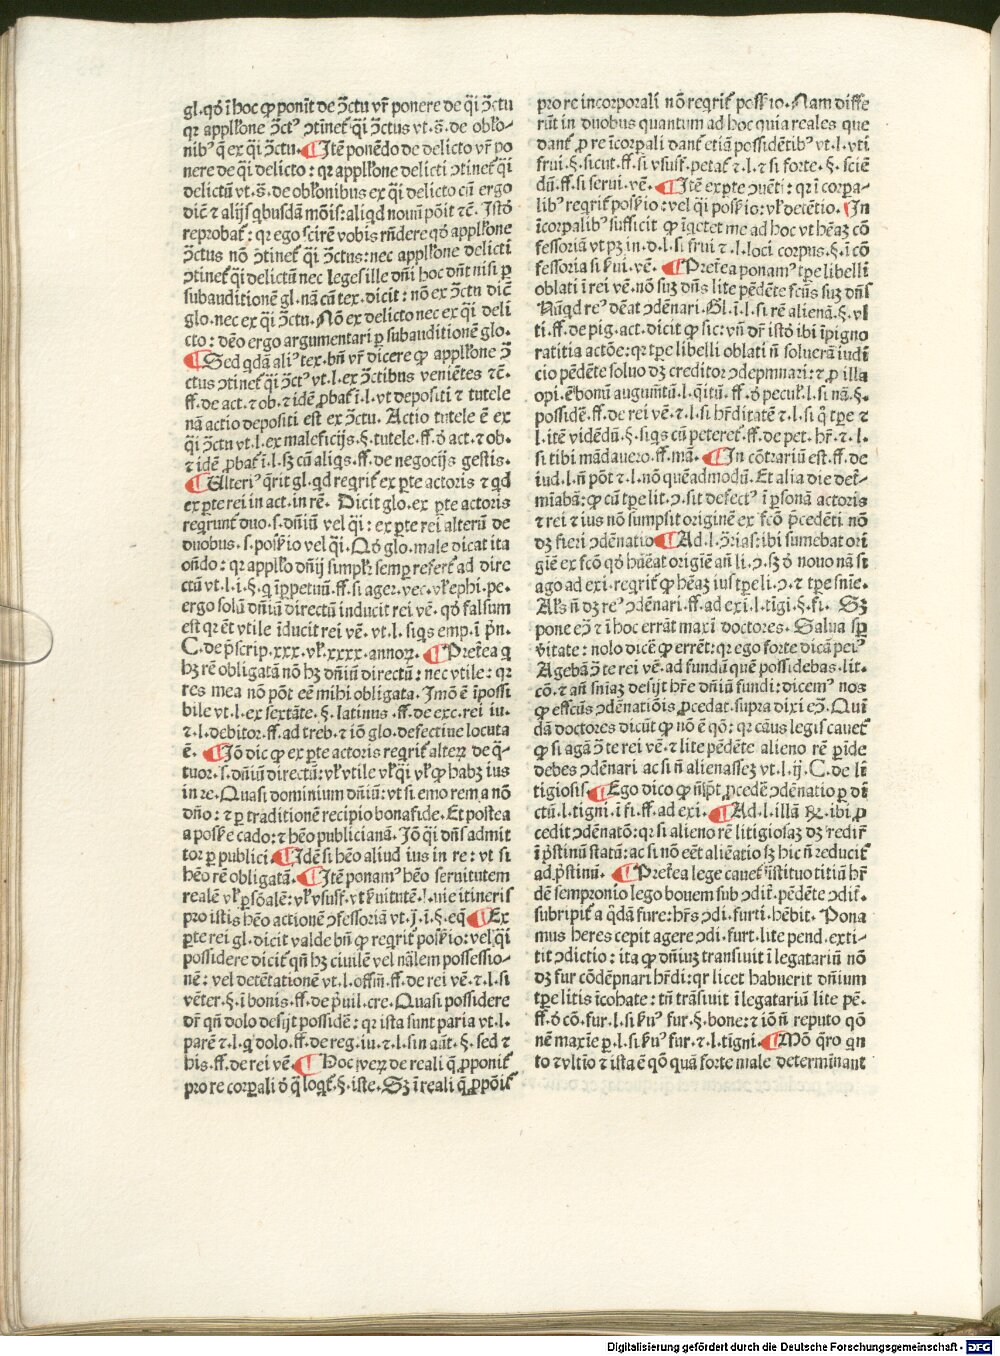 gl. qď ī hoc ꝙ ponit de ꝯctu vr̄ ponere de q̈i ꝯctu
qr appllōne ꝯctꝰ ꝯtinet̄ q̈i ꝯctus vt. s̄. de obłō-
nibꝰ q̄ ex q̈i ꝯctu. ¶ Itē ponēdo de delicto vr̄ po
nere de q̈i delicto: qr appllōne delicti ꝯtinet̄ q̈i
delictū vt. s̄. de obłonibus ex q̈i delicto cū ergo
dic̄t ⁊ alijs qbusdā mōis: aliqd nouū pōit ⁊c̄. Istō
reprobat̄: qr ego scirē vobis rn̄dere qď appllōne
ꝯctus nō ꝯtinet̄ q̈i ꝯctus: nec appllōne delicti
ꝯtinet̄ q̈i delictū nec leges ille dn̄i hoc dn̄t nisi ꝑ
subauditionē gl. nā cū tex. dicit: nō ex ꝯctu dic̄
glo. nec ex q̈i ꝯctu. Nō ex delicto nec ex q̈i deli
cto: dēo ergo argumentari ꝑ subauditionē glo.
¶ Sed qdā aliꝰ tex. bn̄ vr̄ dicere ꝙ appllōne ꝯ
ctus ꝯtinet̄ q̈i ꝯctꝰ vt. l. ex ꝯctibus veniētes ⁊c̄.
ff. de act. ⁊ ob. ⁊ idē ꝓbat̄ ī. l. vt depositi ⁊ tutele
nā actio depositi est ex ꝯctu. Actio tutele ē ex
q̈i ꝯctu vt. l. ex maleficijs. §. tutele. ff. ď act. ⁊ ob.
⁊ idē ꝓbat̄ ī. l. sꝫ cū aliqs. ff. de negocijs gestis.
¶ Ulteriꝰ q̄rit gl. qd reqrit̄ ex ꝑte actoris ⁊ qd
ex ꝑte rei in act. in rē. Dicit glo. ex ꝑte actoris
reqrunt̄ duo. s. dn̄iū vel q̈i: ex ꝑte rei alterū de
duobus. s. posšio vel q̈i. Qď glo. male dicat ita
on̄do: qr appllō dn̄ij simpłr semꝑ refert̄ ad dire
ctū vt. l. i. §. q īꝑpetuū. ff. si ager. vec. vł emphi. pe.
ergo solū dn̄iū directū inducit rei vē. qď falsum
est qr ēt vtile īducit rei vē. vt. l. siqs emp. ī pn̄.
C. de p̄scrip. xxx. vł. xxxx. annoꝝ. ¶ Preťea q
hꝫ rē obligatā nō hꝫ dn̄iū directū: nec vtile: qr
res mea nō pōt eē mihi obligata. Imō ē īpossi
bile vt. l. ex sextāte. §. latinus. ff. de exc. rei iu.
⁊. l. debitor. ff. ad treb. ⁊ iō glo. defectiue locuta
ē. ¶ Iō dic ꝙ ex ꝑte actoris reqrit̄ alteꝝ de q̈-
tuor. s. dn̄iū directū: vł vtile vł q̈i vł ꝙ habꝫ ius
in re. Quasi dominium dn̄iū: vt si emo rem a nō
dn̄o: ⁊ ꝑ traditionē recipio bona fide. Et postea
a possꝭe cado: ⁊ hēo publicianā. Iō q̈i dn̄s admit
tor ꝑ publici. ¶ Idē si hēo aliud ius in re: vt si
hēo rē obligatā. ¶ Itē ponamꝰ hēo seruitutem
realē vł ꝑsōalē: vł vsufr. vł ẜuitutē. l. vie itineris
pro istis hēo actionē ꝯfessoriā vt. j. i. §. eq̄ ¶ Ex
ꝑte rei gl. dicit valde bn̄ ꝙ reqrit̄ posšio: vel q̈i
possidere dicit̄ qn̄ hꝫ ciuilē vel nālem possessio-
nē: vel detētationē vt. l. offm̄. ff. de rei vē. ⁊. l. si
vēter. §. ī bonis. ff. de p̄uil. cre. Quasi possidere
dr̄ qn̄ dolo desijt possidē: qr ista sunt paria vt. l.
parē ⁊. l. q dolo. ff. de reg. iu. ⁊. l. sin aūt. §. sed ⁊
his. ff. de rei vē. ¶ Hoc iveꝝ de reali q̄ ꝓponit̄
pro re corꝑali ď q̄ loqt̄. §. iste. Sꝫ ī reali q̄ ꝓpōit̄
pro re incorporali nō reqrit̄ posšio. Nam diffe
rūt in duobus quantum ad hoc quia reales que
dant̄ ꝓ re īcorꝑali dant̄ etiā possidētibꝰ vt. l. vti
frui. §. sicut. ff. si vsusfr. petat̄ ⁊. l. ⁊ si forte. §. sciē
dū. ff. si serui. vē. ¶ Itē ex ꝑte ꝯuēti: qr ī corꝑa-
libꝰ reqrit̄ posšio: vel q̈i posšio: vł detētio. ¶ In
īcorꝑalibꝰ sufficit ꝙ īqetet me ad hoc vt hēaꝫ cō
fessoriā vt pꝫ in. d. l. si frui ⁊. l. loci corpus. §. ī cō
fessoria si ẜui. vē. ¶ Preťea ponamꝰ tꝑe libelli
oblati ī rei vē. nō suꝫ dn̄s lite pēdēte fcūs suꝫ dn̄s
Nūqd reꝰ dēat ꝯdēnari. Gl. ī. l. si rē alienā. §. vl
ti. ff. de pig. act. dicit ꝙ sic: vn̄ dr̄ istō ibi īpigno
ratitia actōe: qr tꝑe libelli oblati n̄ soluerā iudi
cio pēdēte soluo dꝫ creditor ꝯdepmnari: ⁊ ꝓ illa
opi. ē bonū augumt̄ū. l. qitū. ff. ď pecul. l. si nā. §.
possidē. ff. de rei vē. ⁊. l. si hr̄ditatē ⁊. l. si q̊ tꝑe ⁊
l. itē vidēdū. §. siqs cū peteret̄. ff. de pet. hr̄. ⁊. l.
si tibi mādauero. ff. mā. ¶ In cōtrariū est. ff. de
iud. l. n̄ pōt ⁊. l. nō quēadmodū. Et alia die deť-
mīabā: ꝙ cū tꝑe lit. ꝯ. sit defectꝰ ī ꝑsonā actoris
⁊ rei ⁊ ius nō sumpsit originē ex fcō p̄cedēti nō
dꝫ fieri ꝯdēnatio ¶ Ad. l. ꝯ̄rias: ibi sumebat ori
giē ex fcō qď hūeat origiē an̄ li. ꝯ. sꝫ ď nouo nā si
ago ad exi. reqrit̄ ꝙ hēaꝫ ius tꝑe li. ꝯ. ⁊ tꝑe sn̄ie.
Als n̄ dꝫ reꝰ ꝯdēnari. ff. ad exi. l. tigī. §. fi. Sꝫ
pone eꝯ̄ ⁊ ī hoc errāt maxī doctores. Salua sꝑ
v̄itate: nolo dicē ꝙ errēt: qr ego forte dicā peiꝰ
Agebā ꝯ̄te rei vē. ad fundū quē possidebas. lit.
cō. ⁊ an̄ sn̄iaꝫ desijt hr̄e dn̄iū fundi: dicemꝰ nos
ꝙ effcūs ꝯdēnatiōis ꝓcedat. supra dixi eꝯ̄. Qui
dā doctores dicūt ꝙ nō ē qō: qr cāus legis cauet̄
ꝙ si agā ꝯ̄te rei vē. ⁊ lite pēdēte alieno rē ꝑīde
debes ꝯdēnari ac si n̄ alienasseꝫ vt. l. ij. C. de li
tigiosis. ¶ Ego dico ꝙ n̄ip̄t ꝓcedē ꝯdēnatio ꝑ di
ctū. l. tigni. ī fi. ff. ad exi. ¶ Ad. l. illā ꝶ. ibi ꝓ
cedit ꝯdēnatō: qr si alieno rē litigiosaꝫ dꝫ redir̄
ī p̄stinū statū: ac si nō eēt aliēatio sꝫ hic n̄ reducit̄
ad. p̄stinū. ¶ Preťea lege cauet̄ īstituo titiū hr̄
dē sempronio lego bouem sub ꝯdit̄. pēdēte ꝯdit̄.
subripit̄ a q̄dā fure: hr̄s ꝯdi. furti. hēbit. Pona
mus heres cepit agere ꝯdi. furt. lite pend. exti-
tit ꝯdictio: ita ꝙ dn̄iuꝫ transiuit ī legatariū nō
dꝫ fur cōdēpnari hr̄di: qr licet habuerit dn̄ium
tꝑe litis īcohate: tn̄ trāsiuit ī legatariū lite pē.
ff. ď cō. fur. l. si ẜuꝰ fur. §. bone: ⁊ iō n̄ reputo qō
nem maxīe ꝑ. l. si ẜuꝰ fur. ⁊. l. tigni. ¶ Mō q̄ro qn
to ⁊ vltīo ⁊ ista ē qō quā forte male determinant
Digitalisierung gefördert durch die Deutsche Forschungsgemeinschaft - DFG